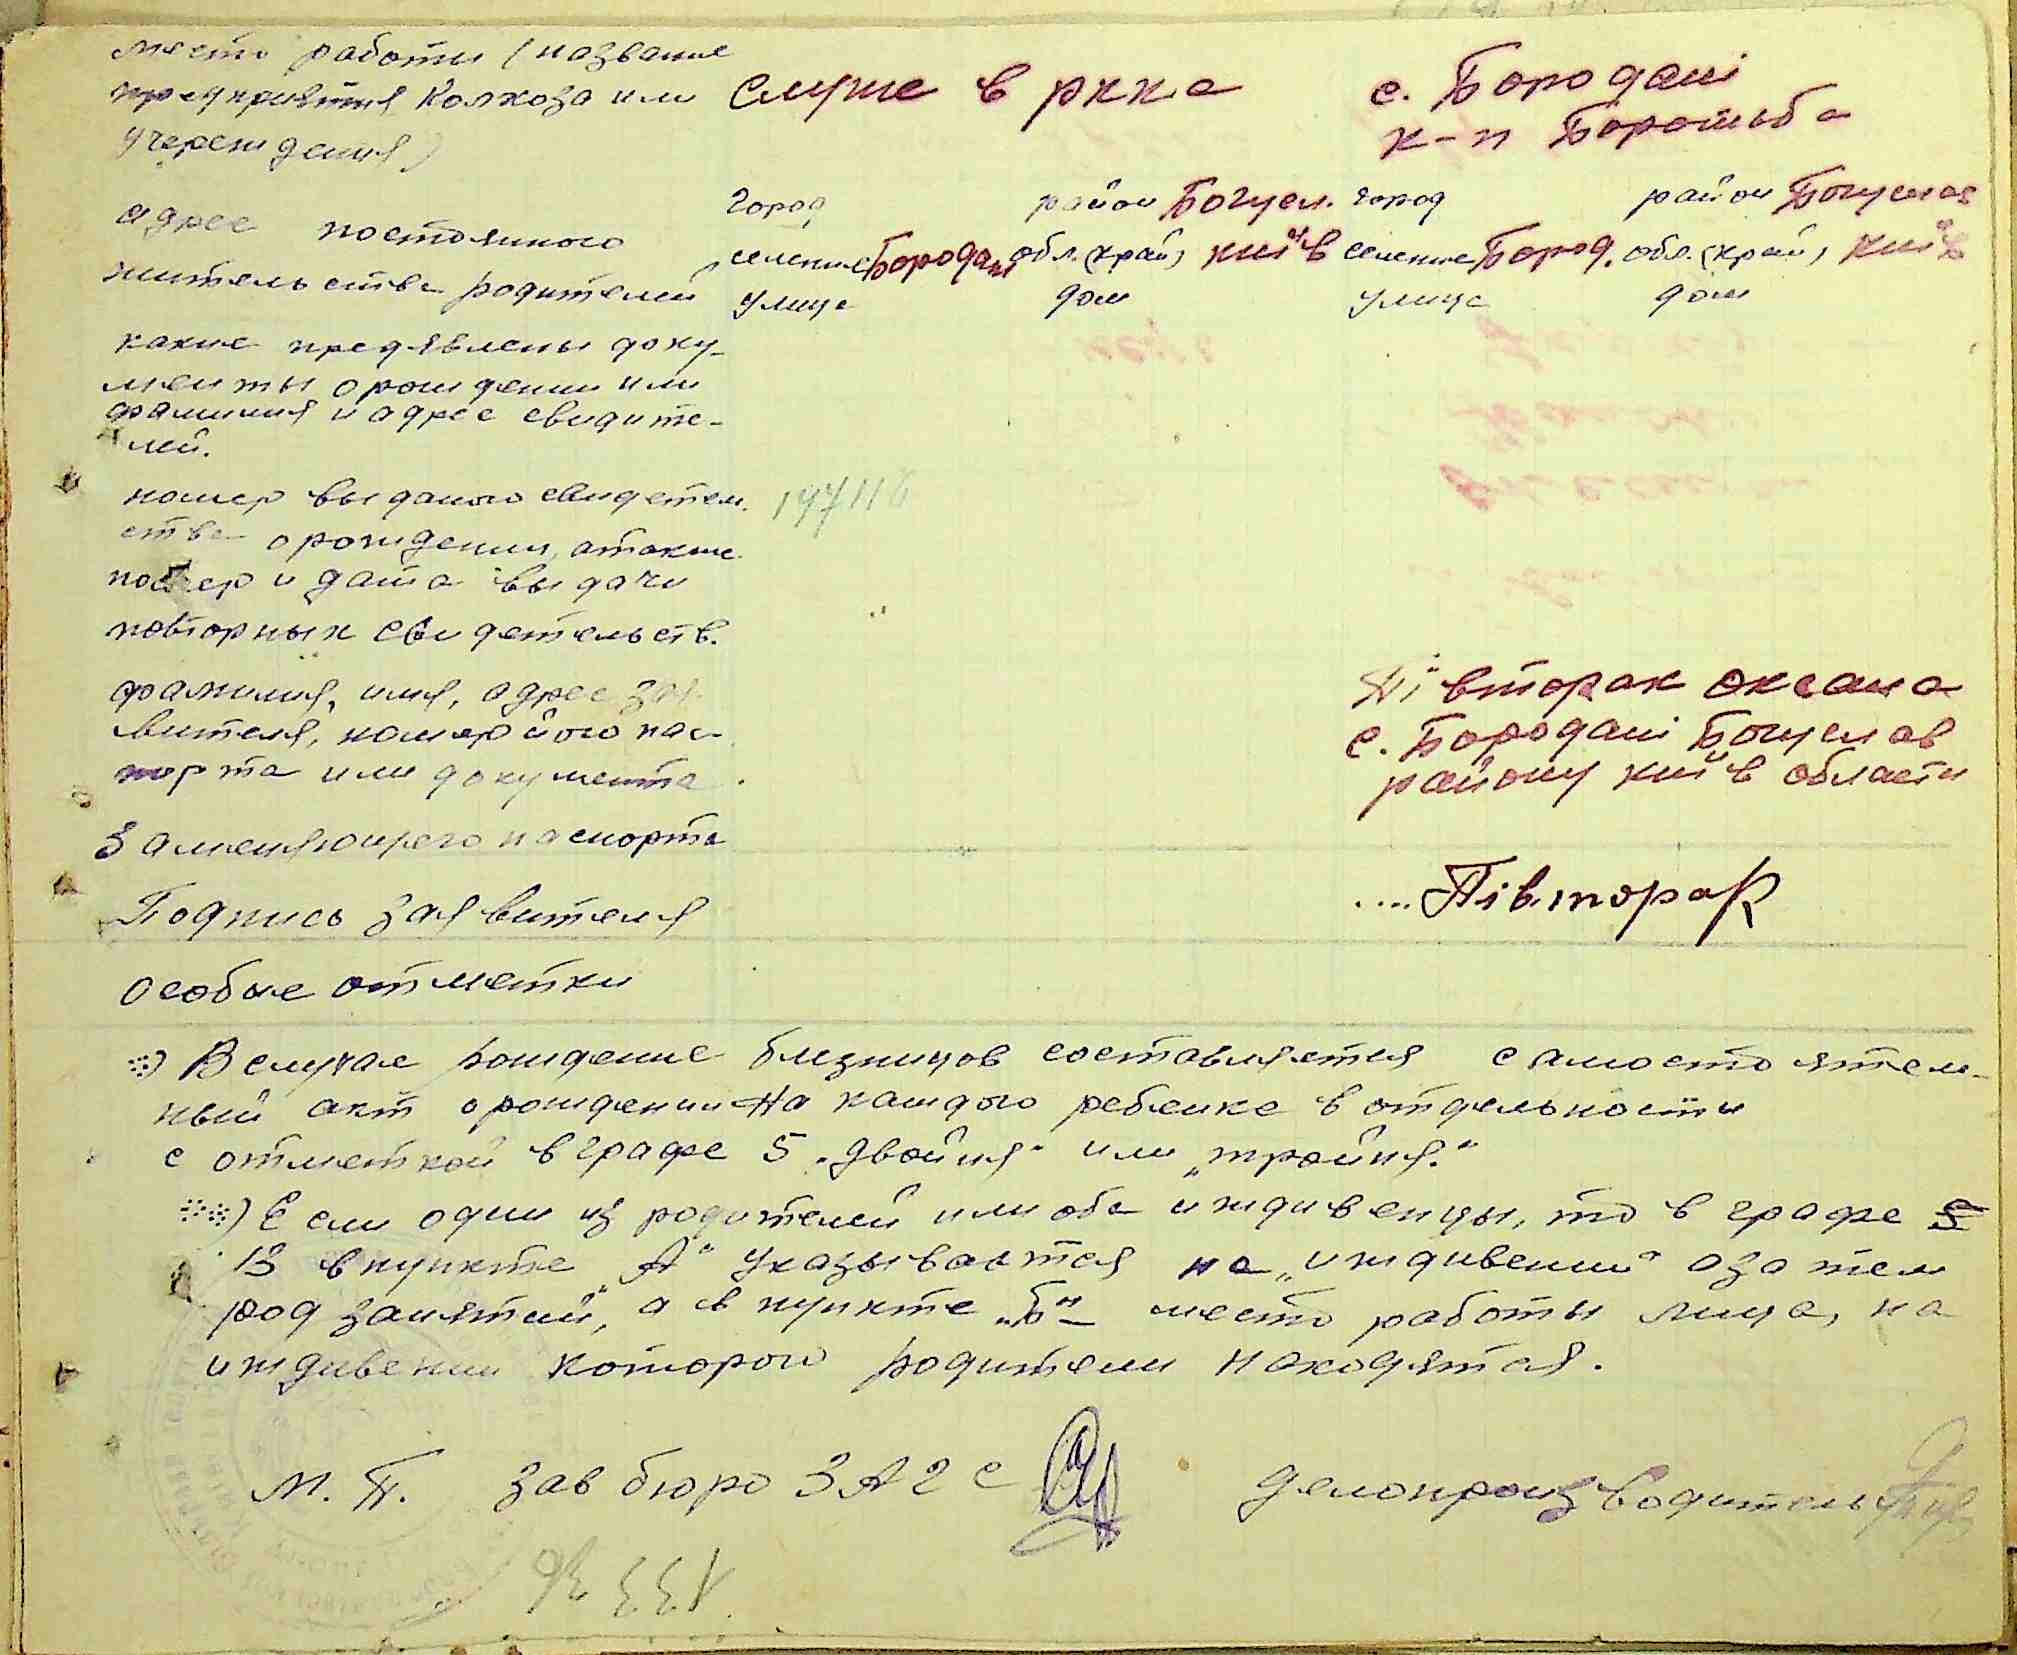 место работы (название
предприятия колхоза или
учереждения)
служе в ркка
с. Бородані
к-п Боротьба
адрес постоянного
жительства родителей
город район Богусл.
селение Бородані обл. (край) київ
улица дом
город район Богуслав
селение Бород. обл. (край) київ
улица дом
какие предявлены доку-
менты о рождении или
фамилия и адрес свидите-
лей.
номер выданого свидетель-
ства о рождении, а также
номер и дата выдачи
повторных свидетельств.
197116
фамилия, имя, адрес зая-
вителя, номер його пас-
порта или документа
заменяющего паспорта
Півторак Оксана
с. Бородані Богуслав
району київ області
Подпись заявителя
Півторак
особые отметки
В случае рождение близнцов составляется самостоятель-
ный акт о рождении на каждого ребенка в отдельности
с отметкой в графе 5 „двойня“ или „тройня.“
Если один из родителей или оба иждивенцы, то в графе
13 в пункте „А“ указывается на „иждивении“ а затем
род занятий, а в пункте „Б“ место работы лица, на
иждивении которого родители находятся.
М. П. Зав бюро ЗАГС делопроизводитель